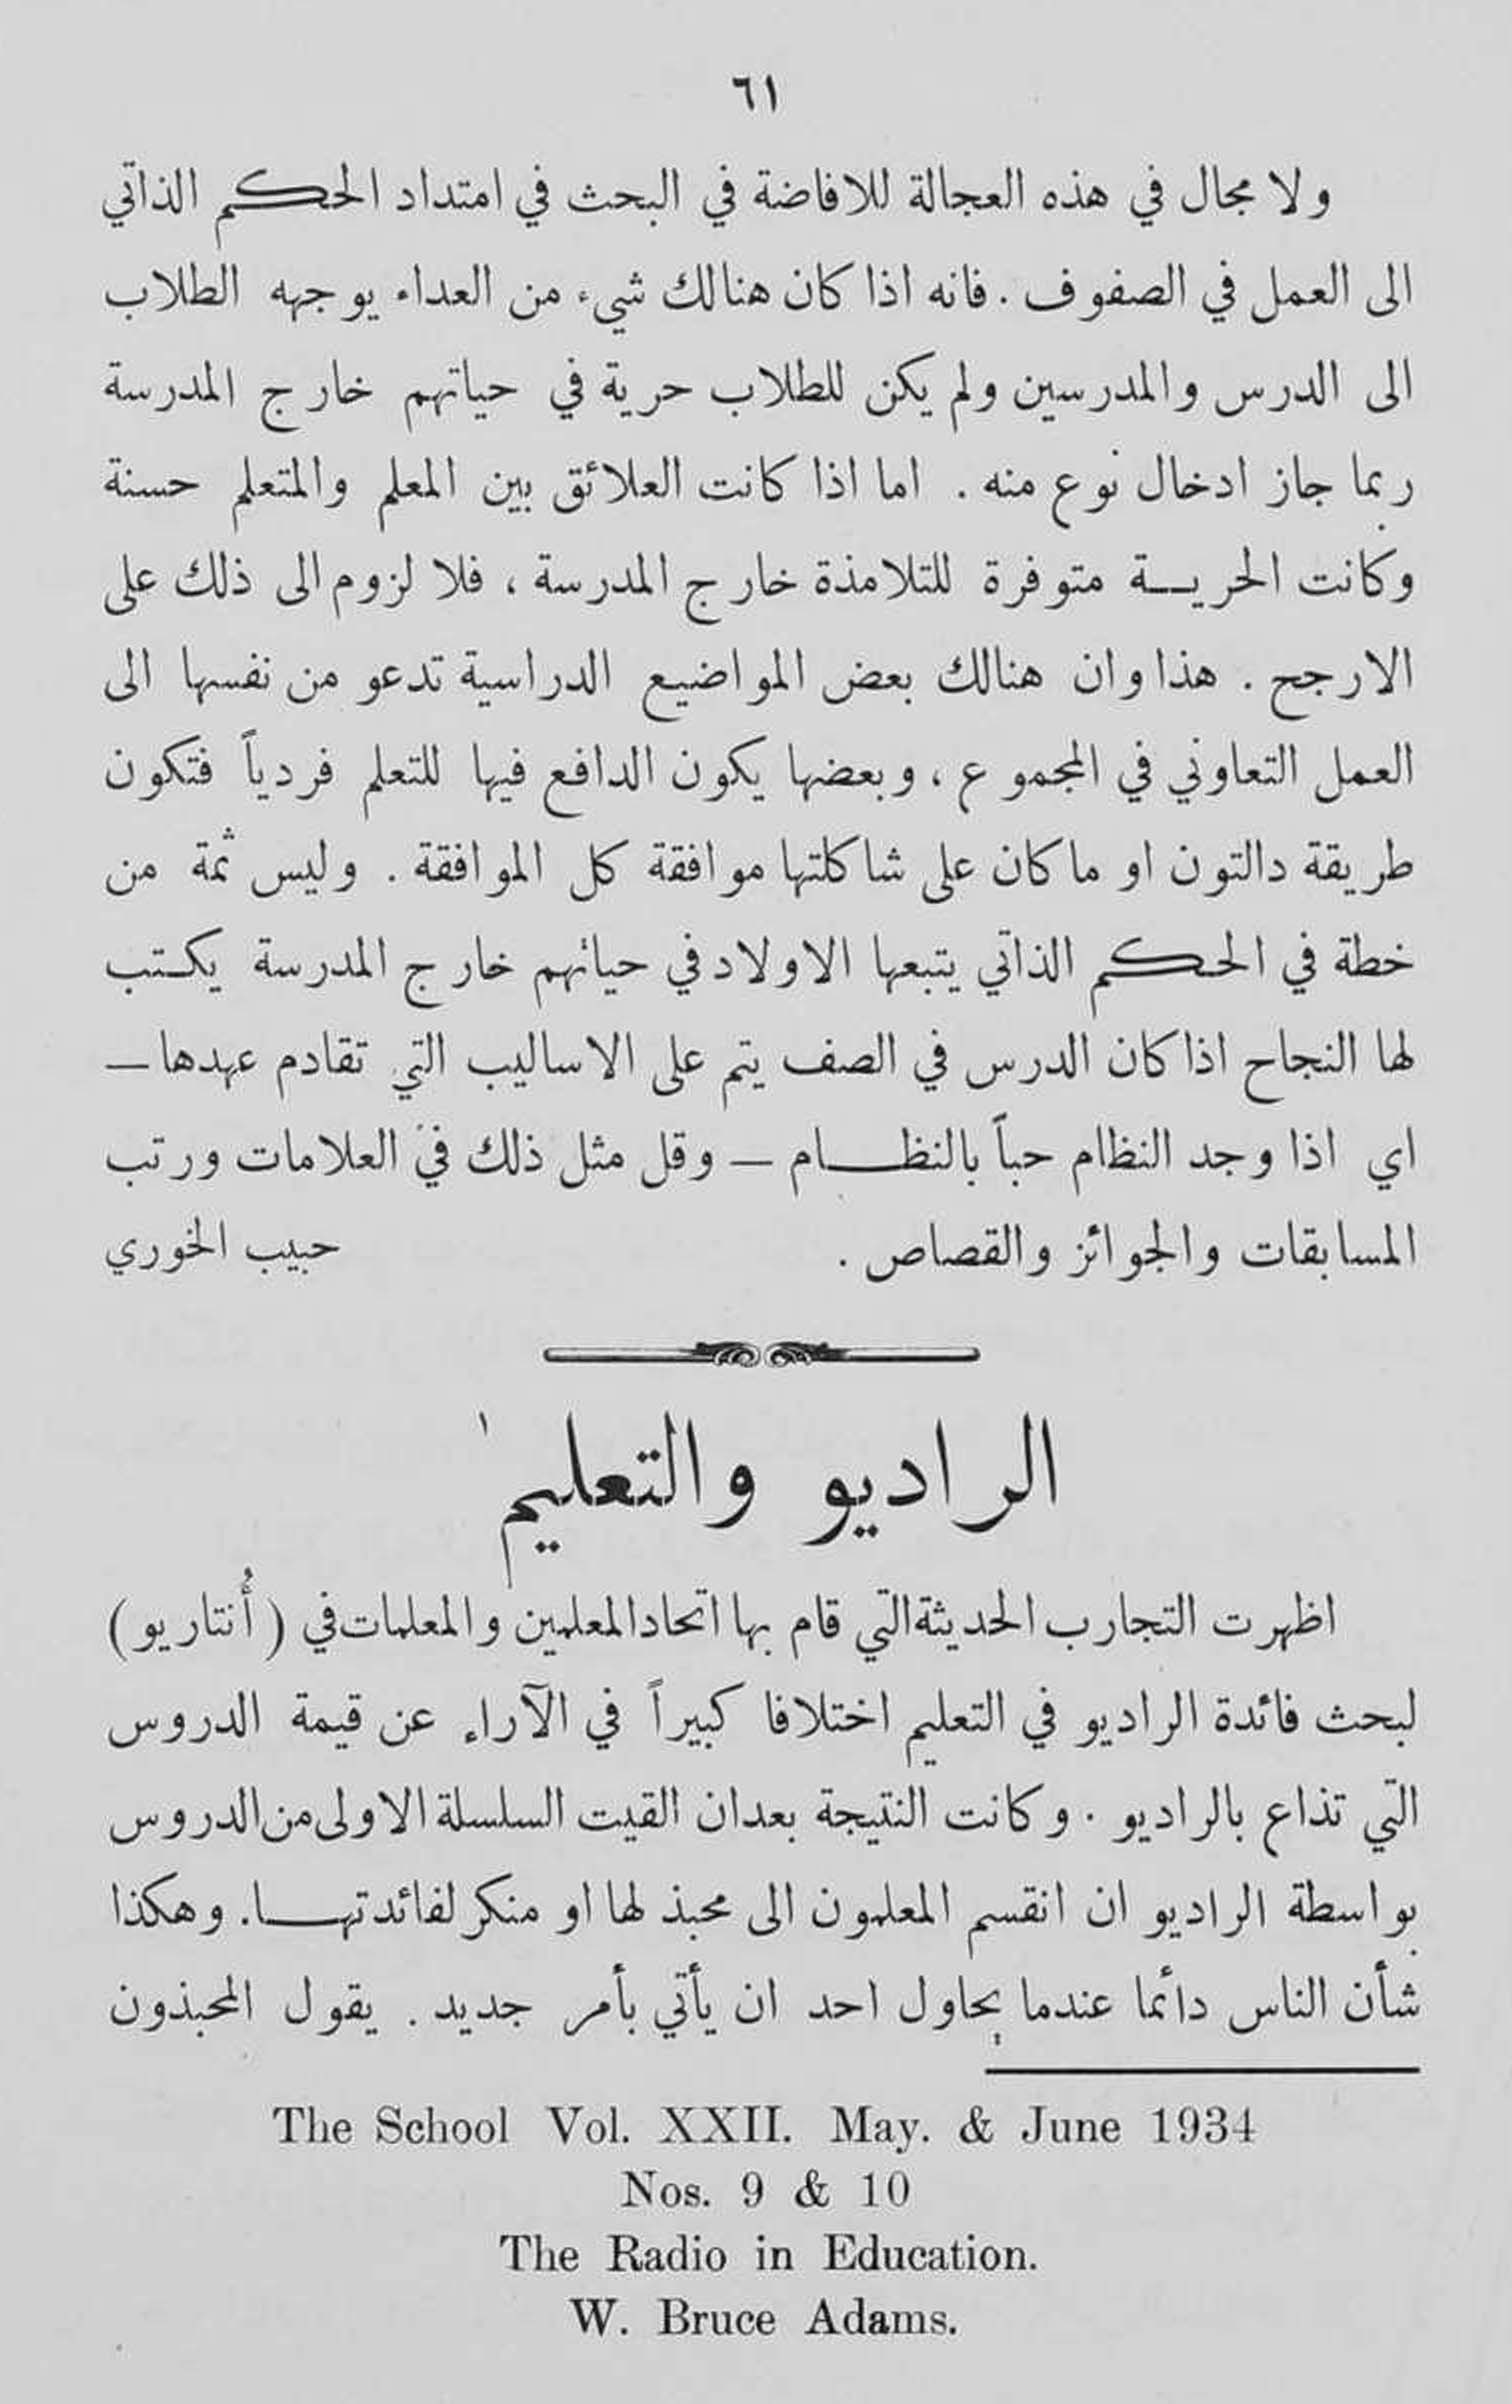 ٦١
ولا مجال في هذه العجالة للافاضة في البحث في امتداد الحكم الذاتي
الى العمل في الصفوف . فانه اذا كان هنالك شيء من العداء يوجهه الطلاب
الى الدرس والمدرسين ولم يكن للطلاب حرية في حياتهم خارج المدرسة
ربما جاز ادخال نوع منه . اما اذا كانت العلائق بين المعلم والمتعلم حسنة
وكانت الحرية متوفرة للتلامذة خارج المدرسة ، فلا لزوم الى ذلك على
الارجح . هذا وان هنالك بعض المواضيع الدراسية تدعو من نفسها الى
العمل التعاوني في المجموع ، وبعضها يكون الدافع فيها للتعلم فردياً فتكون
طريقة دالتون او ما كان على شاكلتها موافقة كل الموافقة . وليس ثمة من
خطة في الحكم الذاتي يتبعها الاولاد في حياتهم خارج المدرسة يكتب
لها النجاح اذا كان الدرس في الصف يتم على الاساليب التي تقادم عهدها —
اي اذا وجد النظام حباً بالنظام — وقل مثل ذلك في العلامات ورتب
المسابقات والجوائز والقصاص . حبيب الخوري
الراديو والتعليم ١
اظهرت التجارب الحديثة التي قام بها اتحاد المعلمين والمعلمات في ( أُنتاريو )
لبحث فائدة الراديو في التعليم اختلافا كبيراً في الآراء عن قيمة الدروس
التي تذاع بالراديو . وكانت النتيجة بعد ان القيت السلسلة الاولى من الدروس
بواسطة الراديو ان انقسم المعلمون الى محبذ لها او منكر لفائدتها. وهكذا
شأن الناس دائما عندما يحاول احد ان يأتي بأمر جديد . يقول المحبذون
The School Vol. XXII. May. & June 1934
Nos. 9 & 10
The Radio in Education.
W. Bruce Adams.